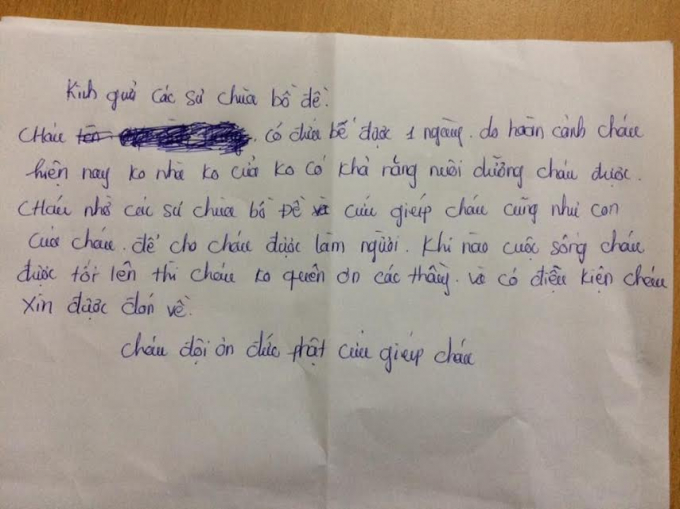 Kính gửi các sư chùa bồ đề.
CHáu tên có đứa bế được 1 ngàng. do hoàn cảnh cháu
hiện nay ko nhà ko cửa ko có khả nằng nuôi dưỡng cháu được.
CHáu nhở các sư chùa bồ Đề và cứu giếp cháu cũng như con
cươ cháu. để cho cháu được làm người. Khi nào cuộc sống cháu
được tốt lên thì cháu ko quên ơn các thầng. và có điều kiện cháu
xin được đón về.
cháu đội ơn đức phật cứu giếp cháu